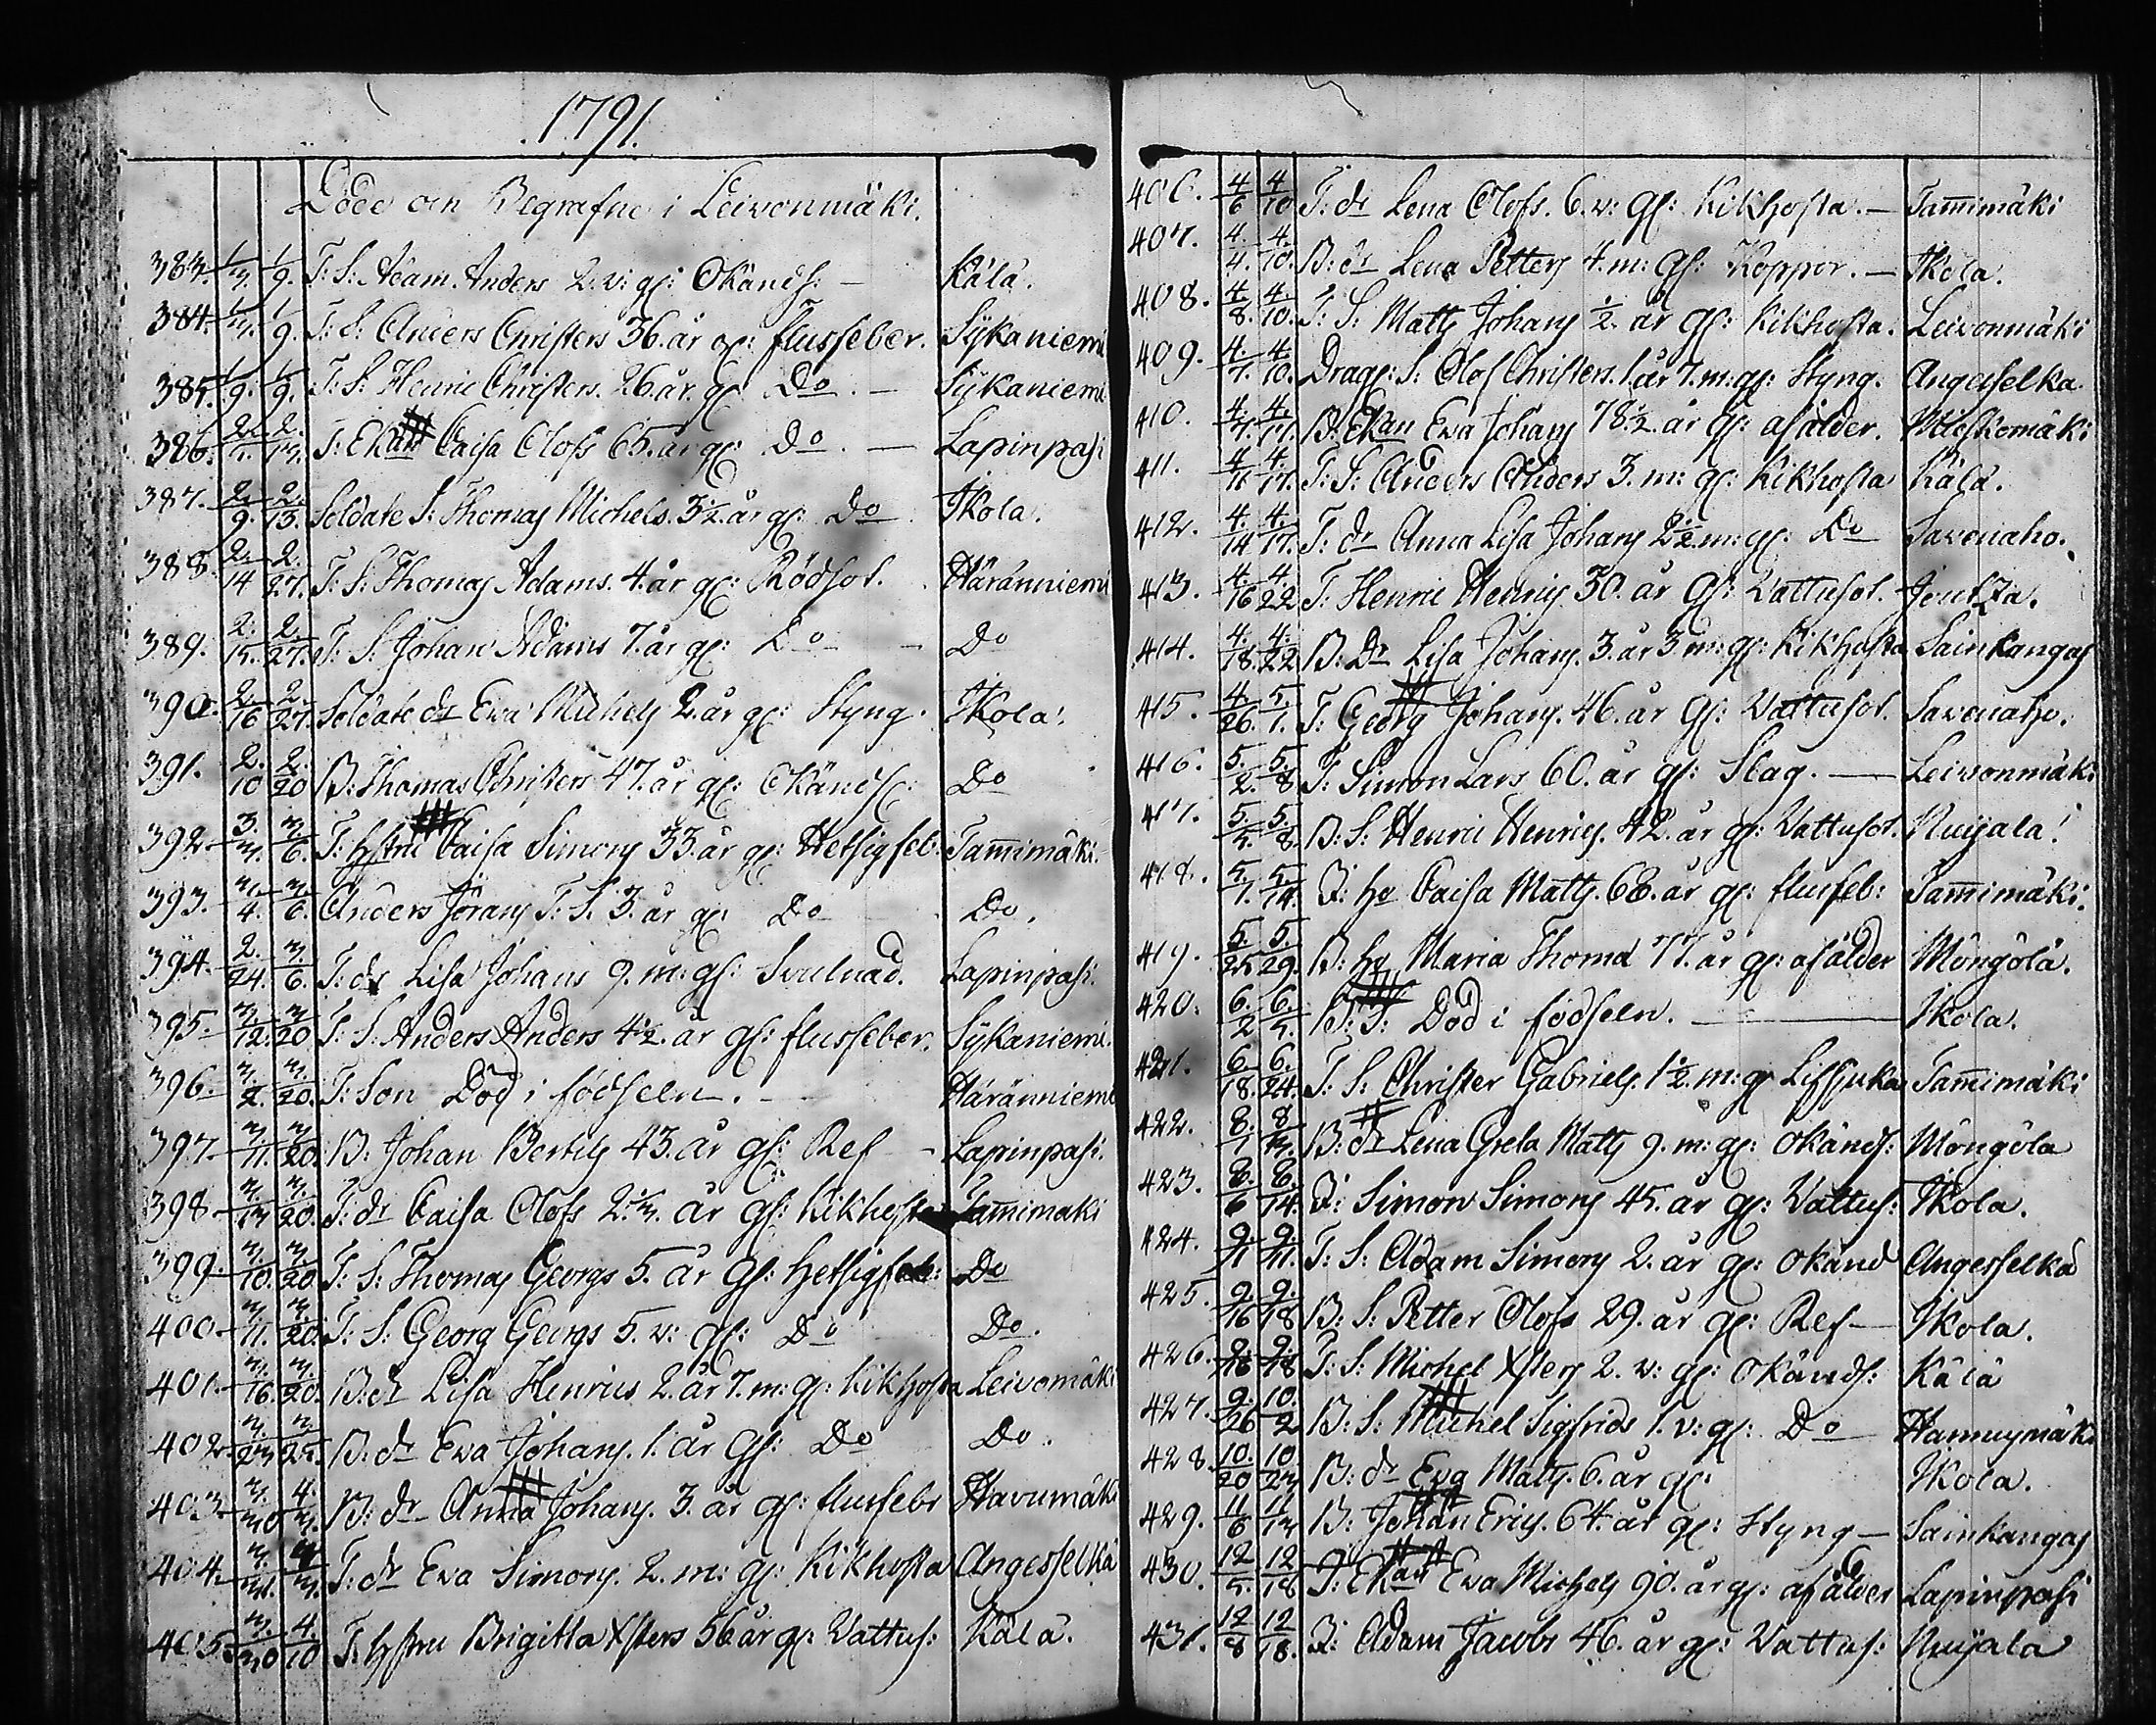 1791.
Döde och Begrafne i Leivonmäki.
383. 1/3. 1/9. T: S: Adam Anders 2. v: gſ: Okändſ: — Kälä.
384. 1/3. 1/9. T: S: Anders Christers 36. år gſ: flussfeber. Sÿkaniemi
385. 1/9. 1/9. T: S: Henric Christers. 26. år. gſ: Do — Sÿkaniemi
386. 2/ 2/13. T: Ekan Caisa Olofs 65. år gſ: Do. — Lapinpasi
387. 2/9. 2/13. Soldate S: Thomas Michels. 3 1/2. år gſ: Do Ikola.
388. 2/14 2/27. T: S: Thomas Adams. 4. år gſ: Rödsot. Häränniemi
389. 2/15. 2/27. T: S: Johan Adams 7. år gſ: Do — Do
390. 2/16 2/27. Soldate dr Ewa Michels 2. år gſ: Styng. Ikola.
391. 2/10 2/20 B: Thomas Christers 47. år gſ: Okändſ: Do
392 3/3. 3/6. T: hstru Caisa Simons 33. år gſ: Hetsigfeb: Tam̄imäki.
393. 3/4. 3/6. Anders Jörans T: S. 3. år gſ: Do Do.
394. 2/24. 3/6. T: dr Lisa Johans 9. m: gſ: Svulnad. Lapinpasi.
395. 3/12. 3/20 T: S: Anders Anders 4 1/2. år gſ: flussfeber. Sÿkaniemi.
396. 3/2. 3/20. T: Son Död i födseln. — Häränniemi
397. 3/11. 3/20. B: Johan Bertils 43. år gſ: Ref — Lapinpasi.
398 3/13 3/20. T: dr Caisa Olofs 2. år gſ: Kikhosta Tam̄imäki
399. 3/10. 3/20 T: S: Thomas Georgs 5. år gſ: hetsigfeb: Do
400. 3/11. 3/20. T: S: Georg Georgs 5. v: gſ: Do Do.
401. 3/16. 3/20. B: dr Lisa Henrics 2. år 7. m: gſ: Kikhosta Leivomäki
402. 3/23 3/25. B: dr Ewa Johans. 1. år gſ: Do Do.
403. 3/30 4/3. B: dr Anna Johans. 3. år gſ: flussfebr Havumäki
404. 3/31. 4/3. T: dr Eva Simons. 2. m: gſ: Kikhosta Angesselkä
405. 3/30 4/10 T: hstru Brigitta Xsters 56 år gſ: Vattus: Kälä.
406. 4/6 4/10 T: dr Lena Olofs. 6. v: gſ: Kikhosta. — Tam̄imäki
407. 4/4. 4/10. B: dr Lena Petters 4. m: gſ: Koppor. — Ikola.
408. 4/8. 4/10. T: S: Matts Johans 1/2. år gſ: Kikhosta. Leivonmäki
409. 4/7. 4/10. Drag: S: Olof Christers. 1. år 7. m: gſ: Styng. Angesselkä.
410. 4/7. 4/17. B: Ekan Ewa Johans 78 1/2. år gſ: af ålder.
411. 4/11 4/17. T: S: Anders Anders 3. m: gſ: Kikhosta Kälä.
412. 4/14 4/17. T: dr Anna Lisa Johans 2 1/2 m: gſ: Do Savenaho.
413. 4/16 4/22 T: Henric Henrics. 30. år gſ: Vattusot. Joutza.
414. 4/18. 4/22 B: Dr Lisa Johans. 3. år 3 m: gſ: Kikhosta Sainkangas
415. 4/26. 5/1. T: Georg Johans. 46. år gſ: Vattusot. Savenaho.
416. 5/2. 5/8 T: Simon Lars 60. år gſ: Slag. — Leivonmäki
417. 5/5. 5/8. B: S: Henric Henrics. 42. år gſ: Vattusot. Ruijala.
418. 5/7. 5/14. T: hu Caisa Matts. 68. år gſ: flussfeb: Tam̄imäki.
419. 5/25 5/29. B: hu Maria Thoma 77. år gſ: af ålder Möngölä.
420. 6/2 6/5. B: S: Död i födseln. — Ikola.
421. 6/18. 6/24. T: S: Christer Gabriels. 1 1/2. m: gſ: Tam̄imäki
422. 8/1 8/3. B: dr Lena Greta Matts 9. m: gſ: okändſ: Möngölä
423. 8/6 8/14. T: Simon Simons 45. år gſ: Vattus: Ikola.
424. 9/11 9/11. T: S: Adam Simons 2. år gſ: okänd Angesselkä
425. 9/16 9/18 B: S: Petter Olofs 29. år gſ: Ref — Ikola.
426. 9/16 9/18 T: S: Michel Xsters 2. v: gſ: Okändſ: Kälä
427. 9/26 10/2 B: S: Michel Sigfrids 1. v: gſ: Do
428. 10/20 10/23 B: dr Ewa Matts. 6. år gſ: Ikola.
429. 11/6 11/13 B: Johan Erics. 64. år gſ: Styng — Sainkangas
430. 12/5. 12/18 T: Ekan Ewa Michels 90. år gſ: af ålder Lapinpasi
431. 12/8 12/18. T: Adam Jacobs 46. år gſ: Vattus: Ruijala